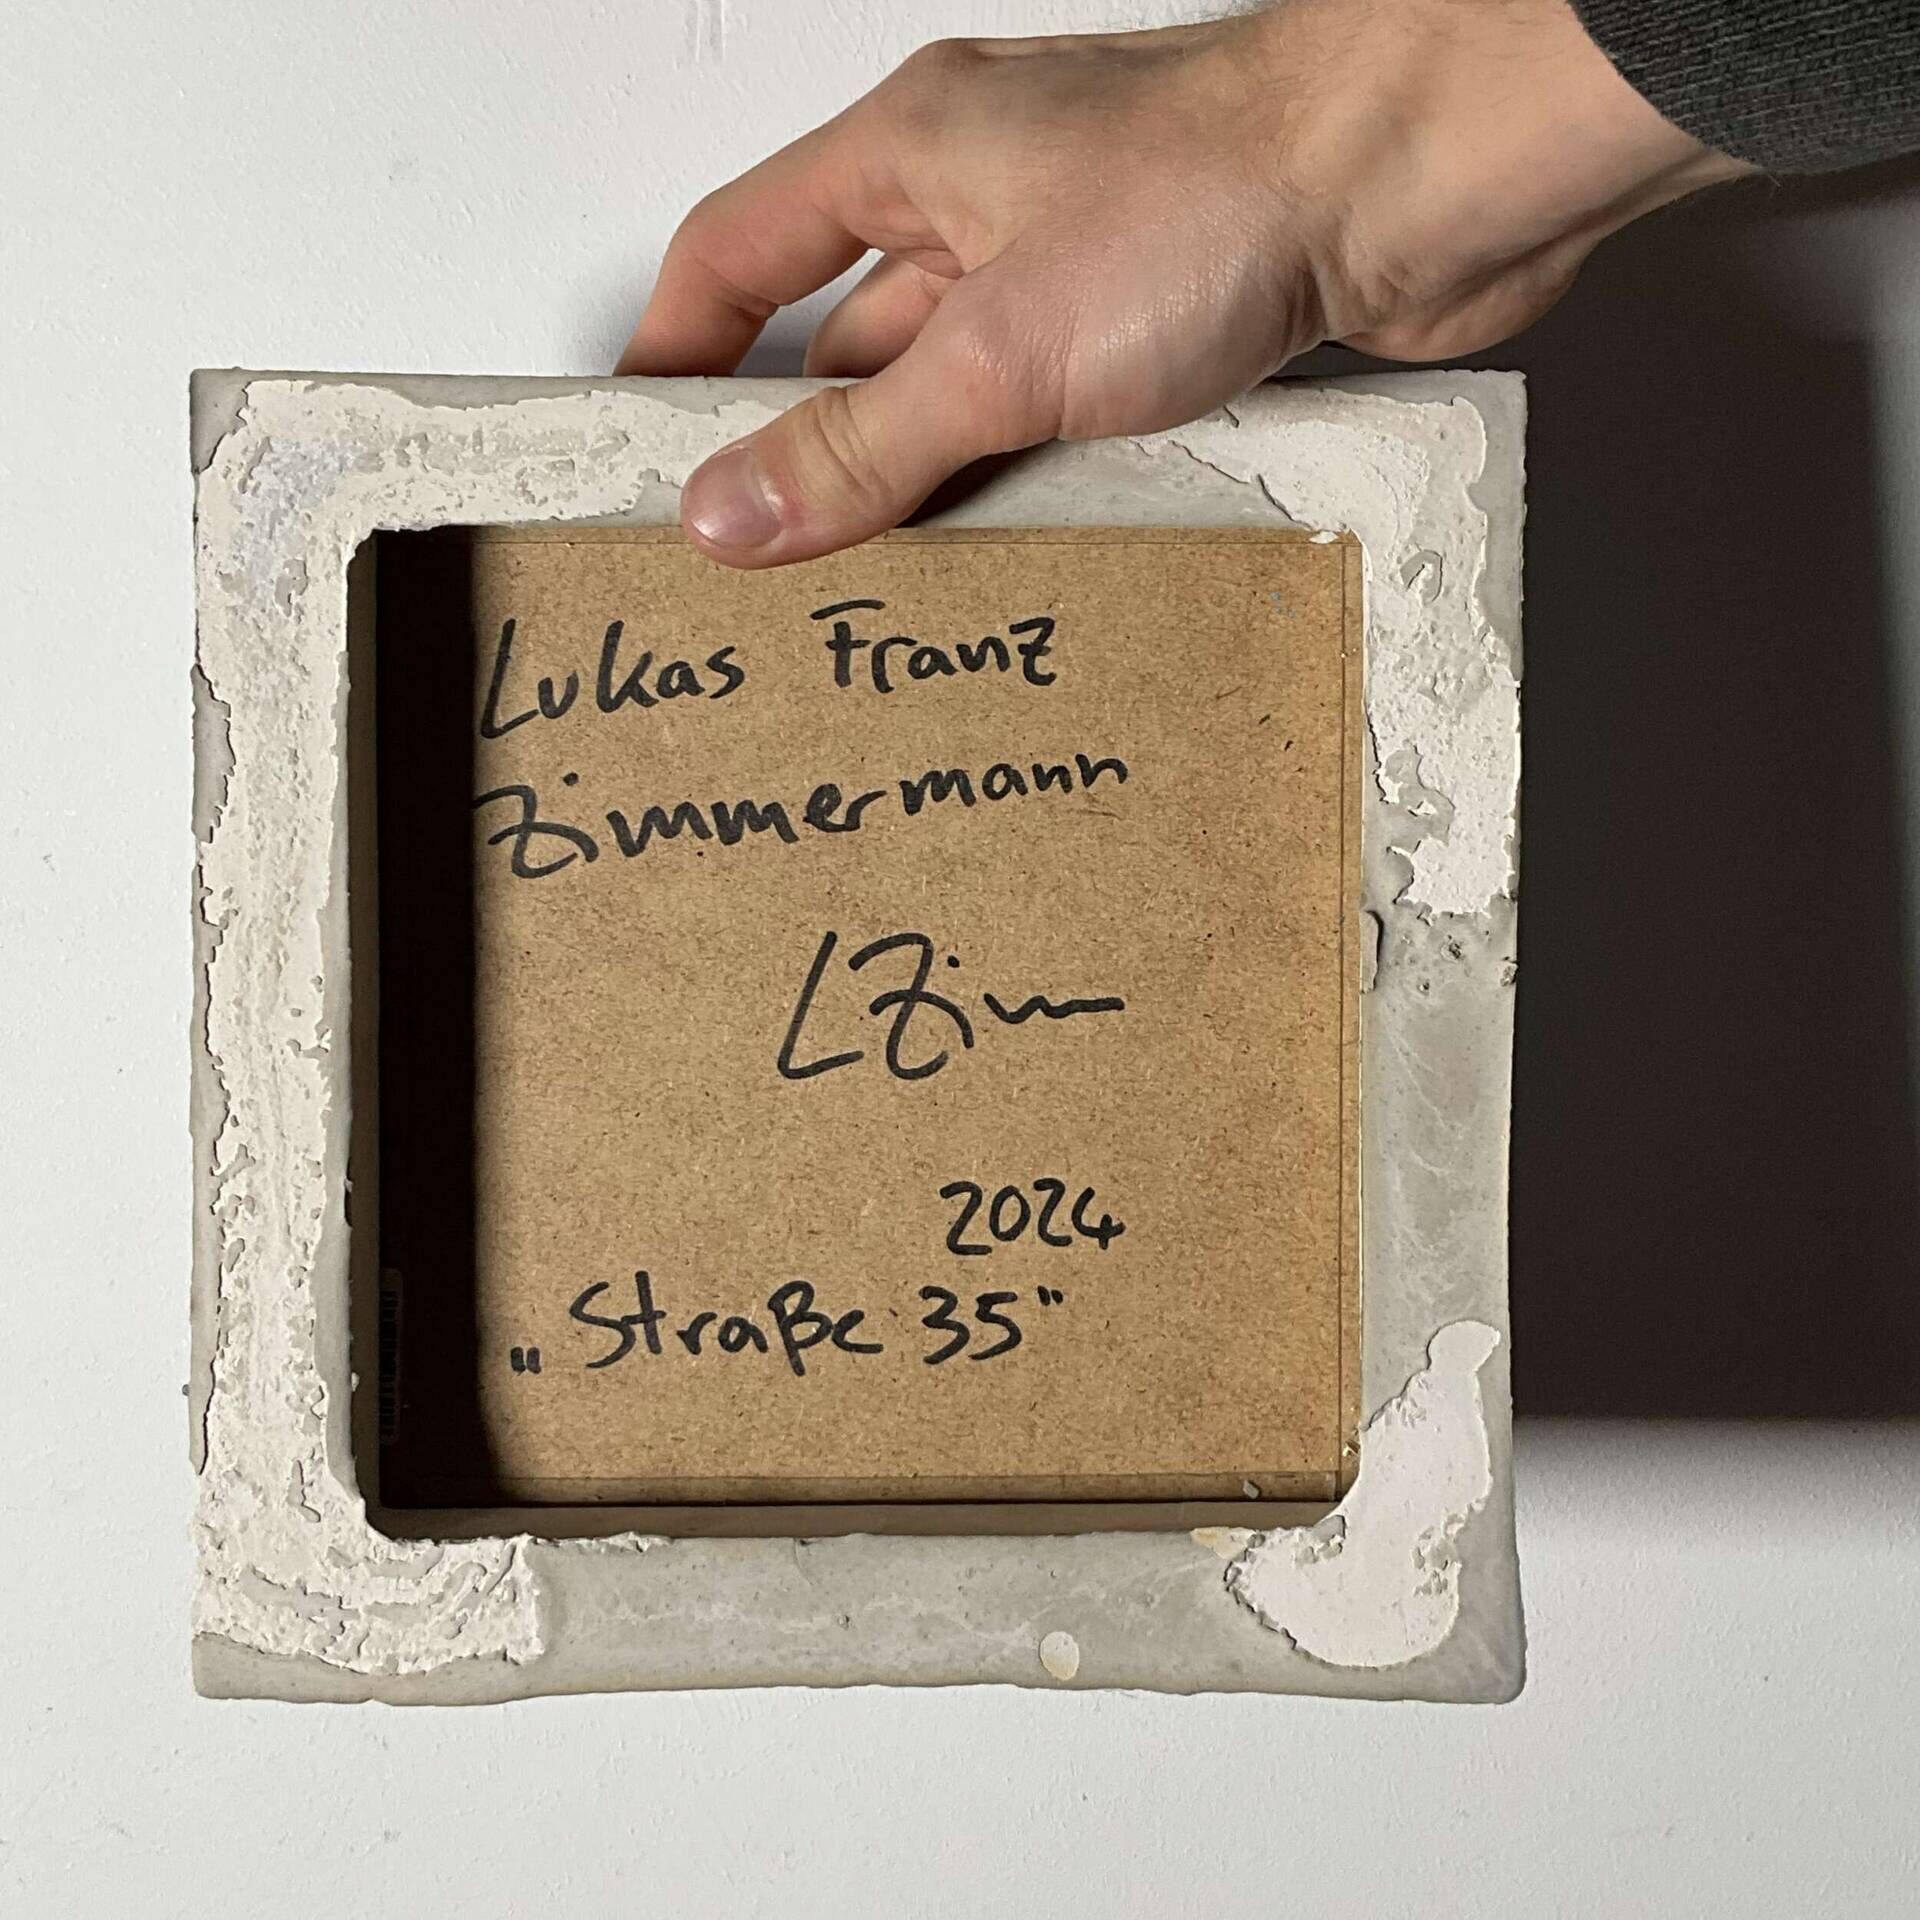 Lukas Franz
Zimmermann
LZim
2024
„Straße 35”